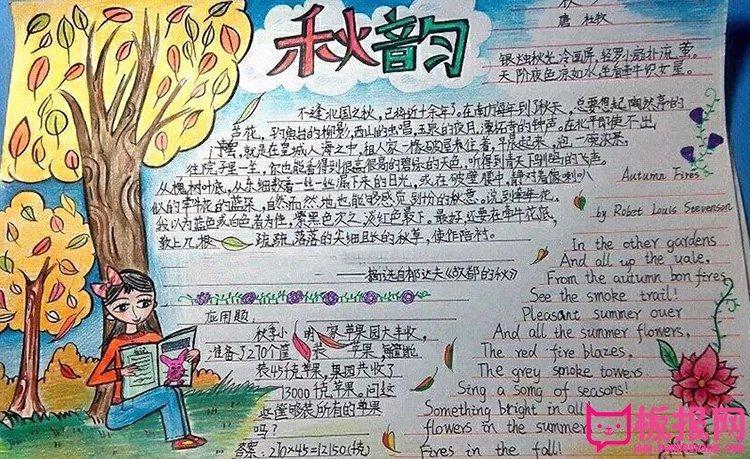 秋韵
唐 杜牧
银烛秋光冷画屏,轻罗小扇扑流萤。
天阶夜色凉如水,坐看牵牛织女星。
不逢北国之秋,已将近十余年了。在南方每年到了秋天,总要想起陶然亭的
芦花,钓鱼台的柳影,西山的虫唱,玉泉的夜月,潭柘寺的钟声。在北平即使不出
门,就是在皇城人海之中,租人家一椽破屋来住着,早晨起来,泡一碗浓茶,
往院子里一坐,你也能看得到很高很高的碧绿的天色,听得到青天下驯鸽的飞声。
从槐树叶底,从东细数着一丝一丝漏下来的日光,或在破壁腰中,静对着像喇叭
似的牵牛花的蓝朵,自然而然地也能够感觉到十分的秋意。说到牵牛花,
我以为蓝色或白色者为佳,紫黑色次之,淡红色最下。最好,还要在牵牛花底,
教上几根 疏疏落落的尖细且长的秋草,使作陪衬。
——摘选自郁达夫《故都的秋》
Autumn Fires
by Robet Louis Steevenson
In the other gardens
And all up the vale,
From the autumn bonfires
See the smoke trail!
Pleasant summer over
And all the summer flowers,
The red fire blazes,
The grey smoke towers.
Sing a song of seasons!
Something bright in all
flowers in the summer
Fires in the fall!
应用题:
秋季小明家苹果园大丰收,
准备了270个筐装苹果,每筐能
装45千克苹果,果园共收了
13000千克苹果。问这
些筐够装所有的苹果
吗?
答案:270×45=12150(千克)
板报网